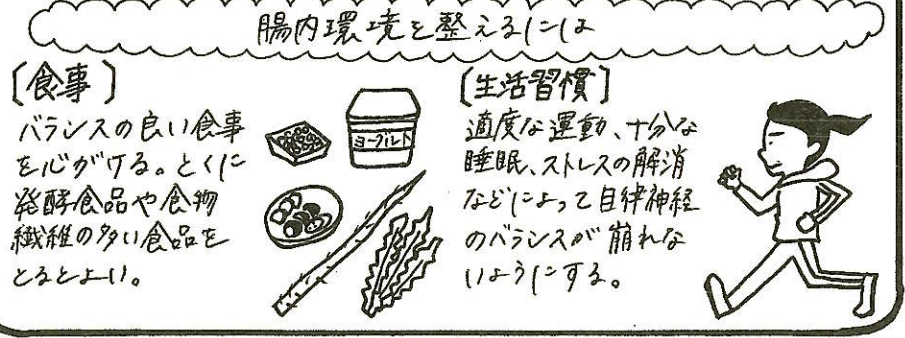 腸内環境を整えるには
［食事］
バランスの良い食事
を心がける。とくに
発酵食品や食物
繊維の多い食品を
とるとよい。
ヨーグルト
［生活習慣］
適度な運動、十分な
睡眠、ストレスの解消
などによって自律神経
のバランスが崩れな
いようにする。